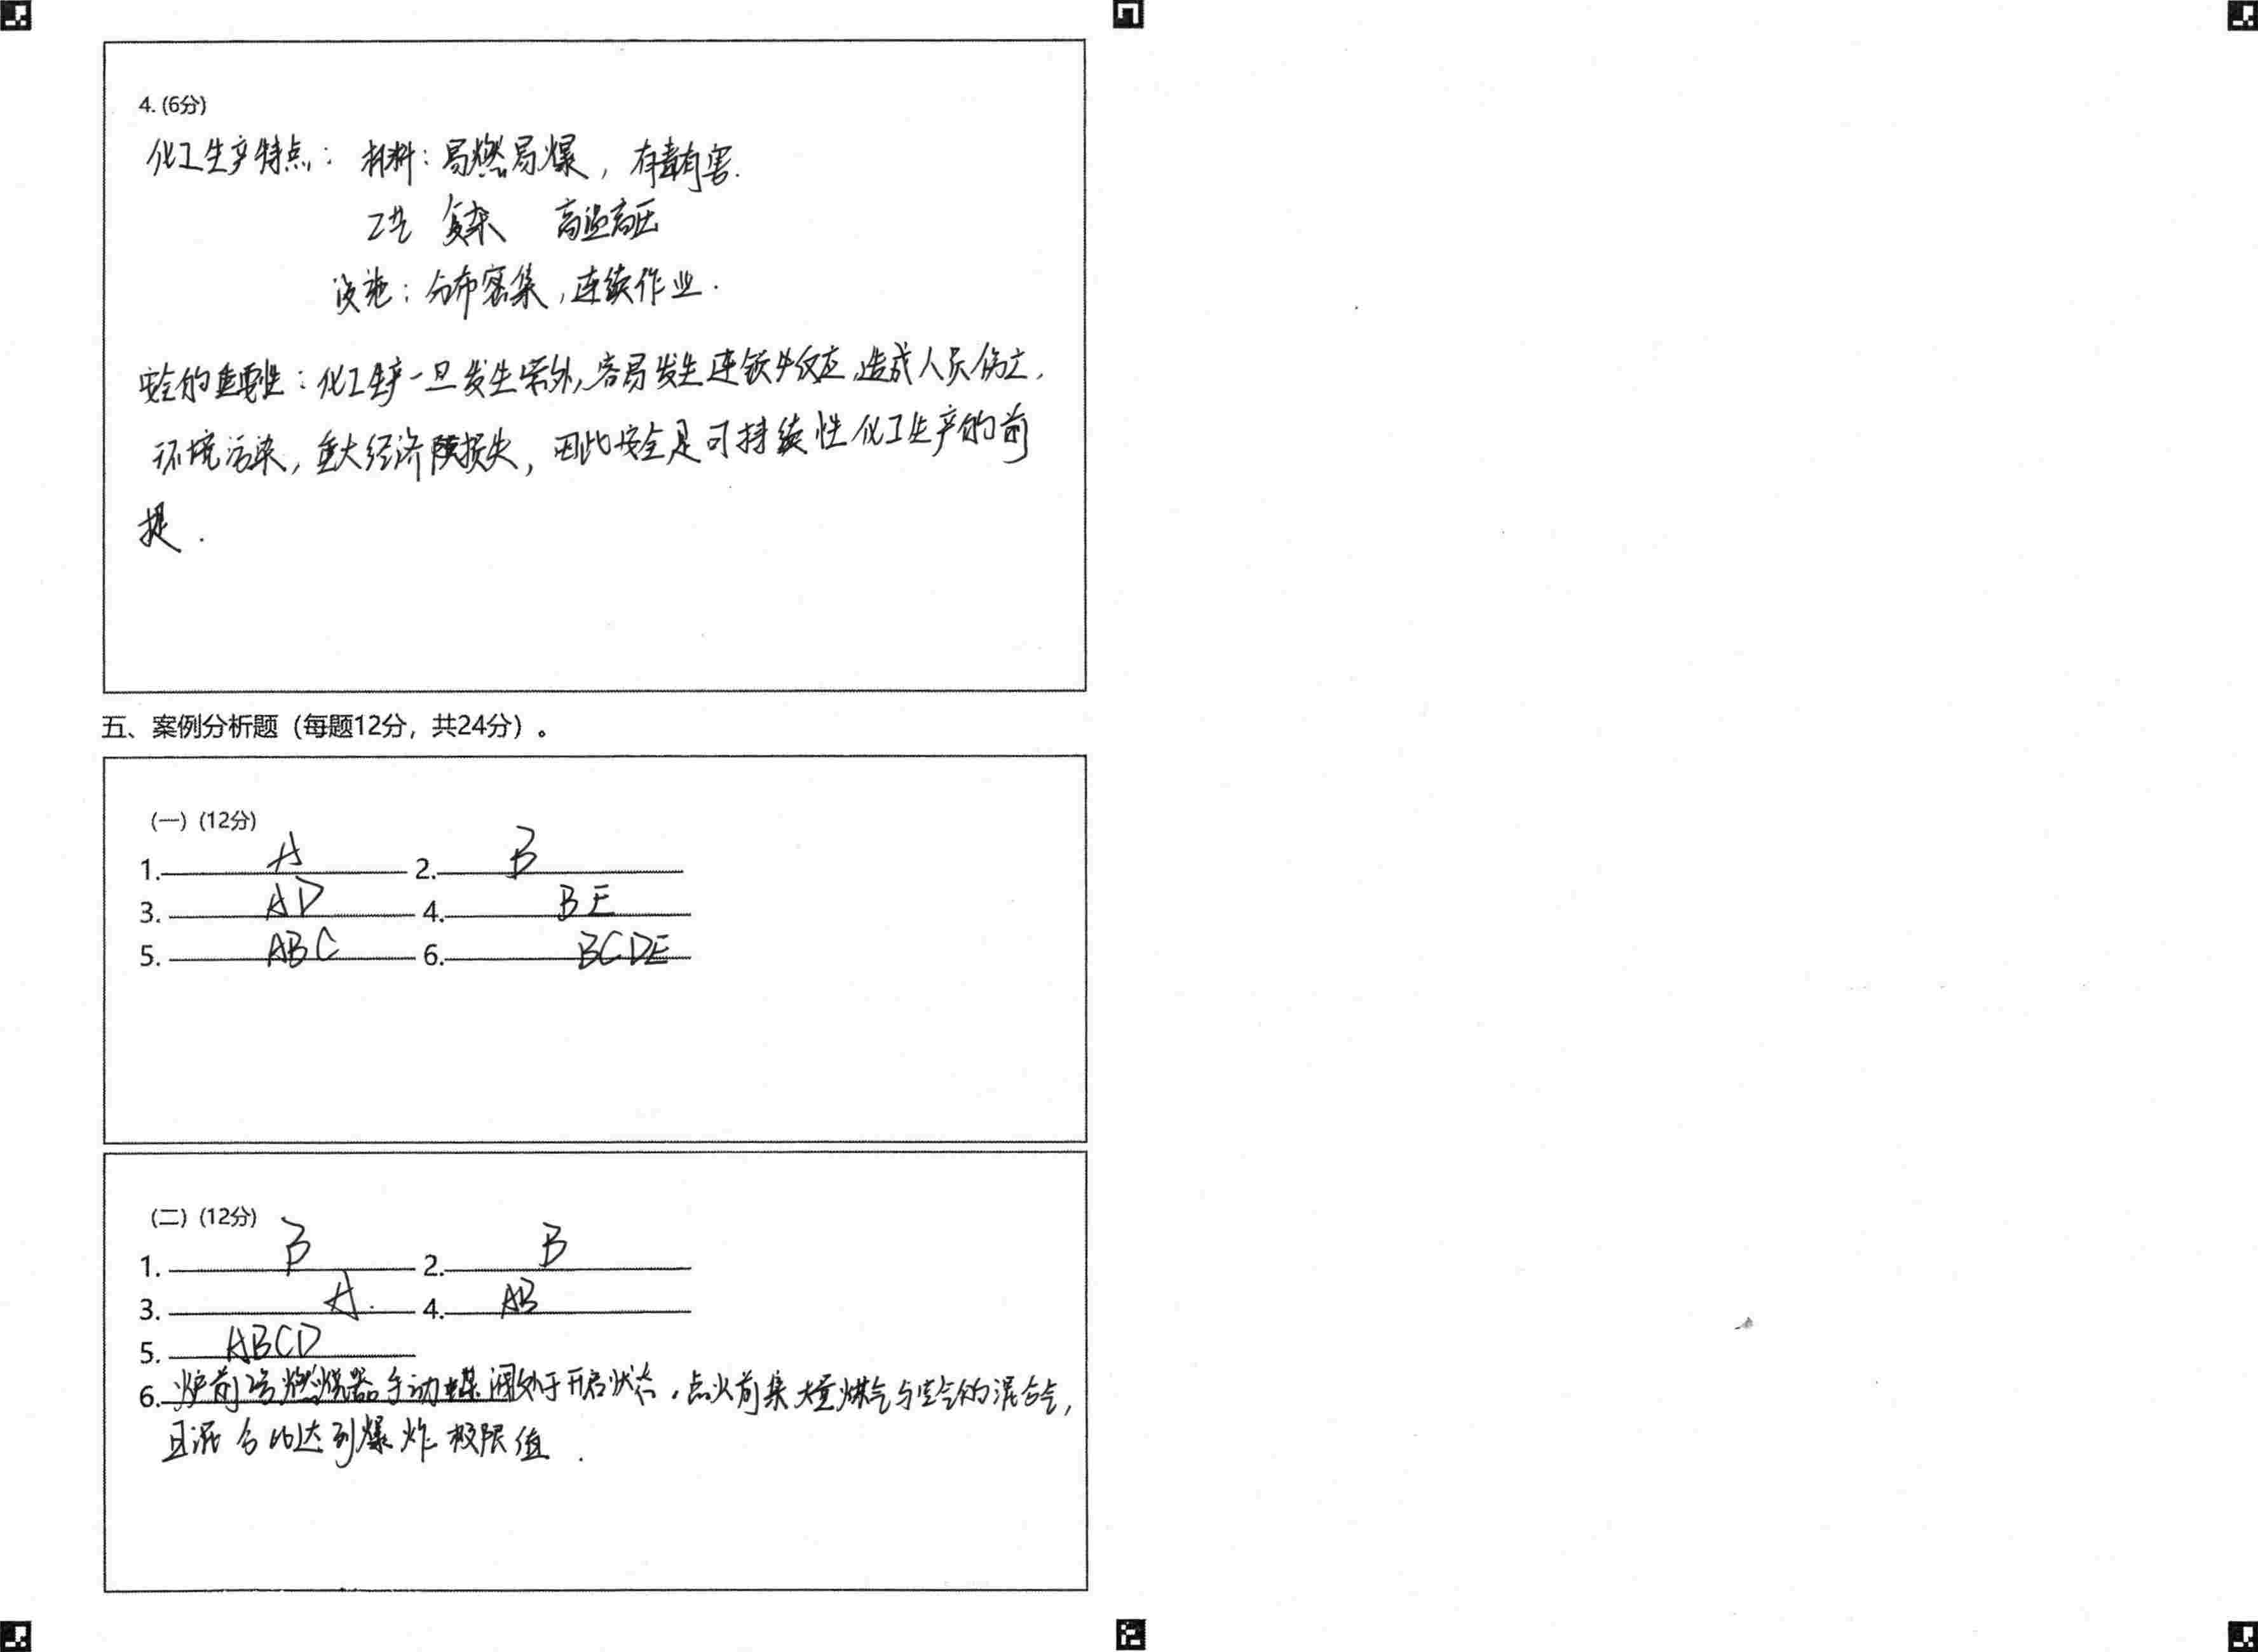 4. (6分)
化工生产特点： 材料：易燃易爆，有毒有害.
工艺 复杂 高温高压
设施：分布密集，连续作业.
安全的重要性：化工生产一旦发生意外，容易发生连锁反应，造成人员伤亡，
环境污染，重大经济损失，因此安全是可持续性化工生产的前
提.
五、案例分析题（每题12分，共24分）。
(一) (12分)
1. A 2. B
3. AD 4. BE
5. ABC 6. BCDE
(二) (12分)
1. B 2. B
3. A. 4. AB
5. ABCD
6. 炉前2号燃烧器手动蝶阀处于开启状态，点火前集大量煤气与空气的混合气，
且混合比达到爆炸极限值.